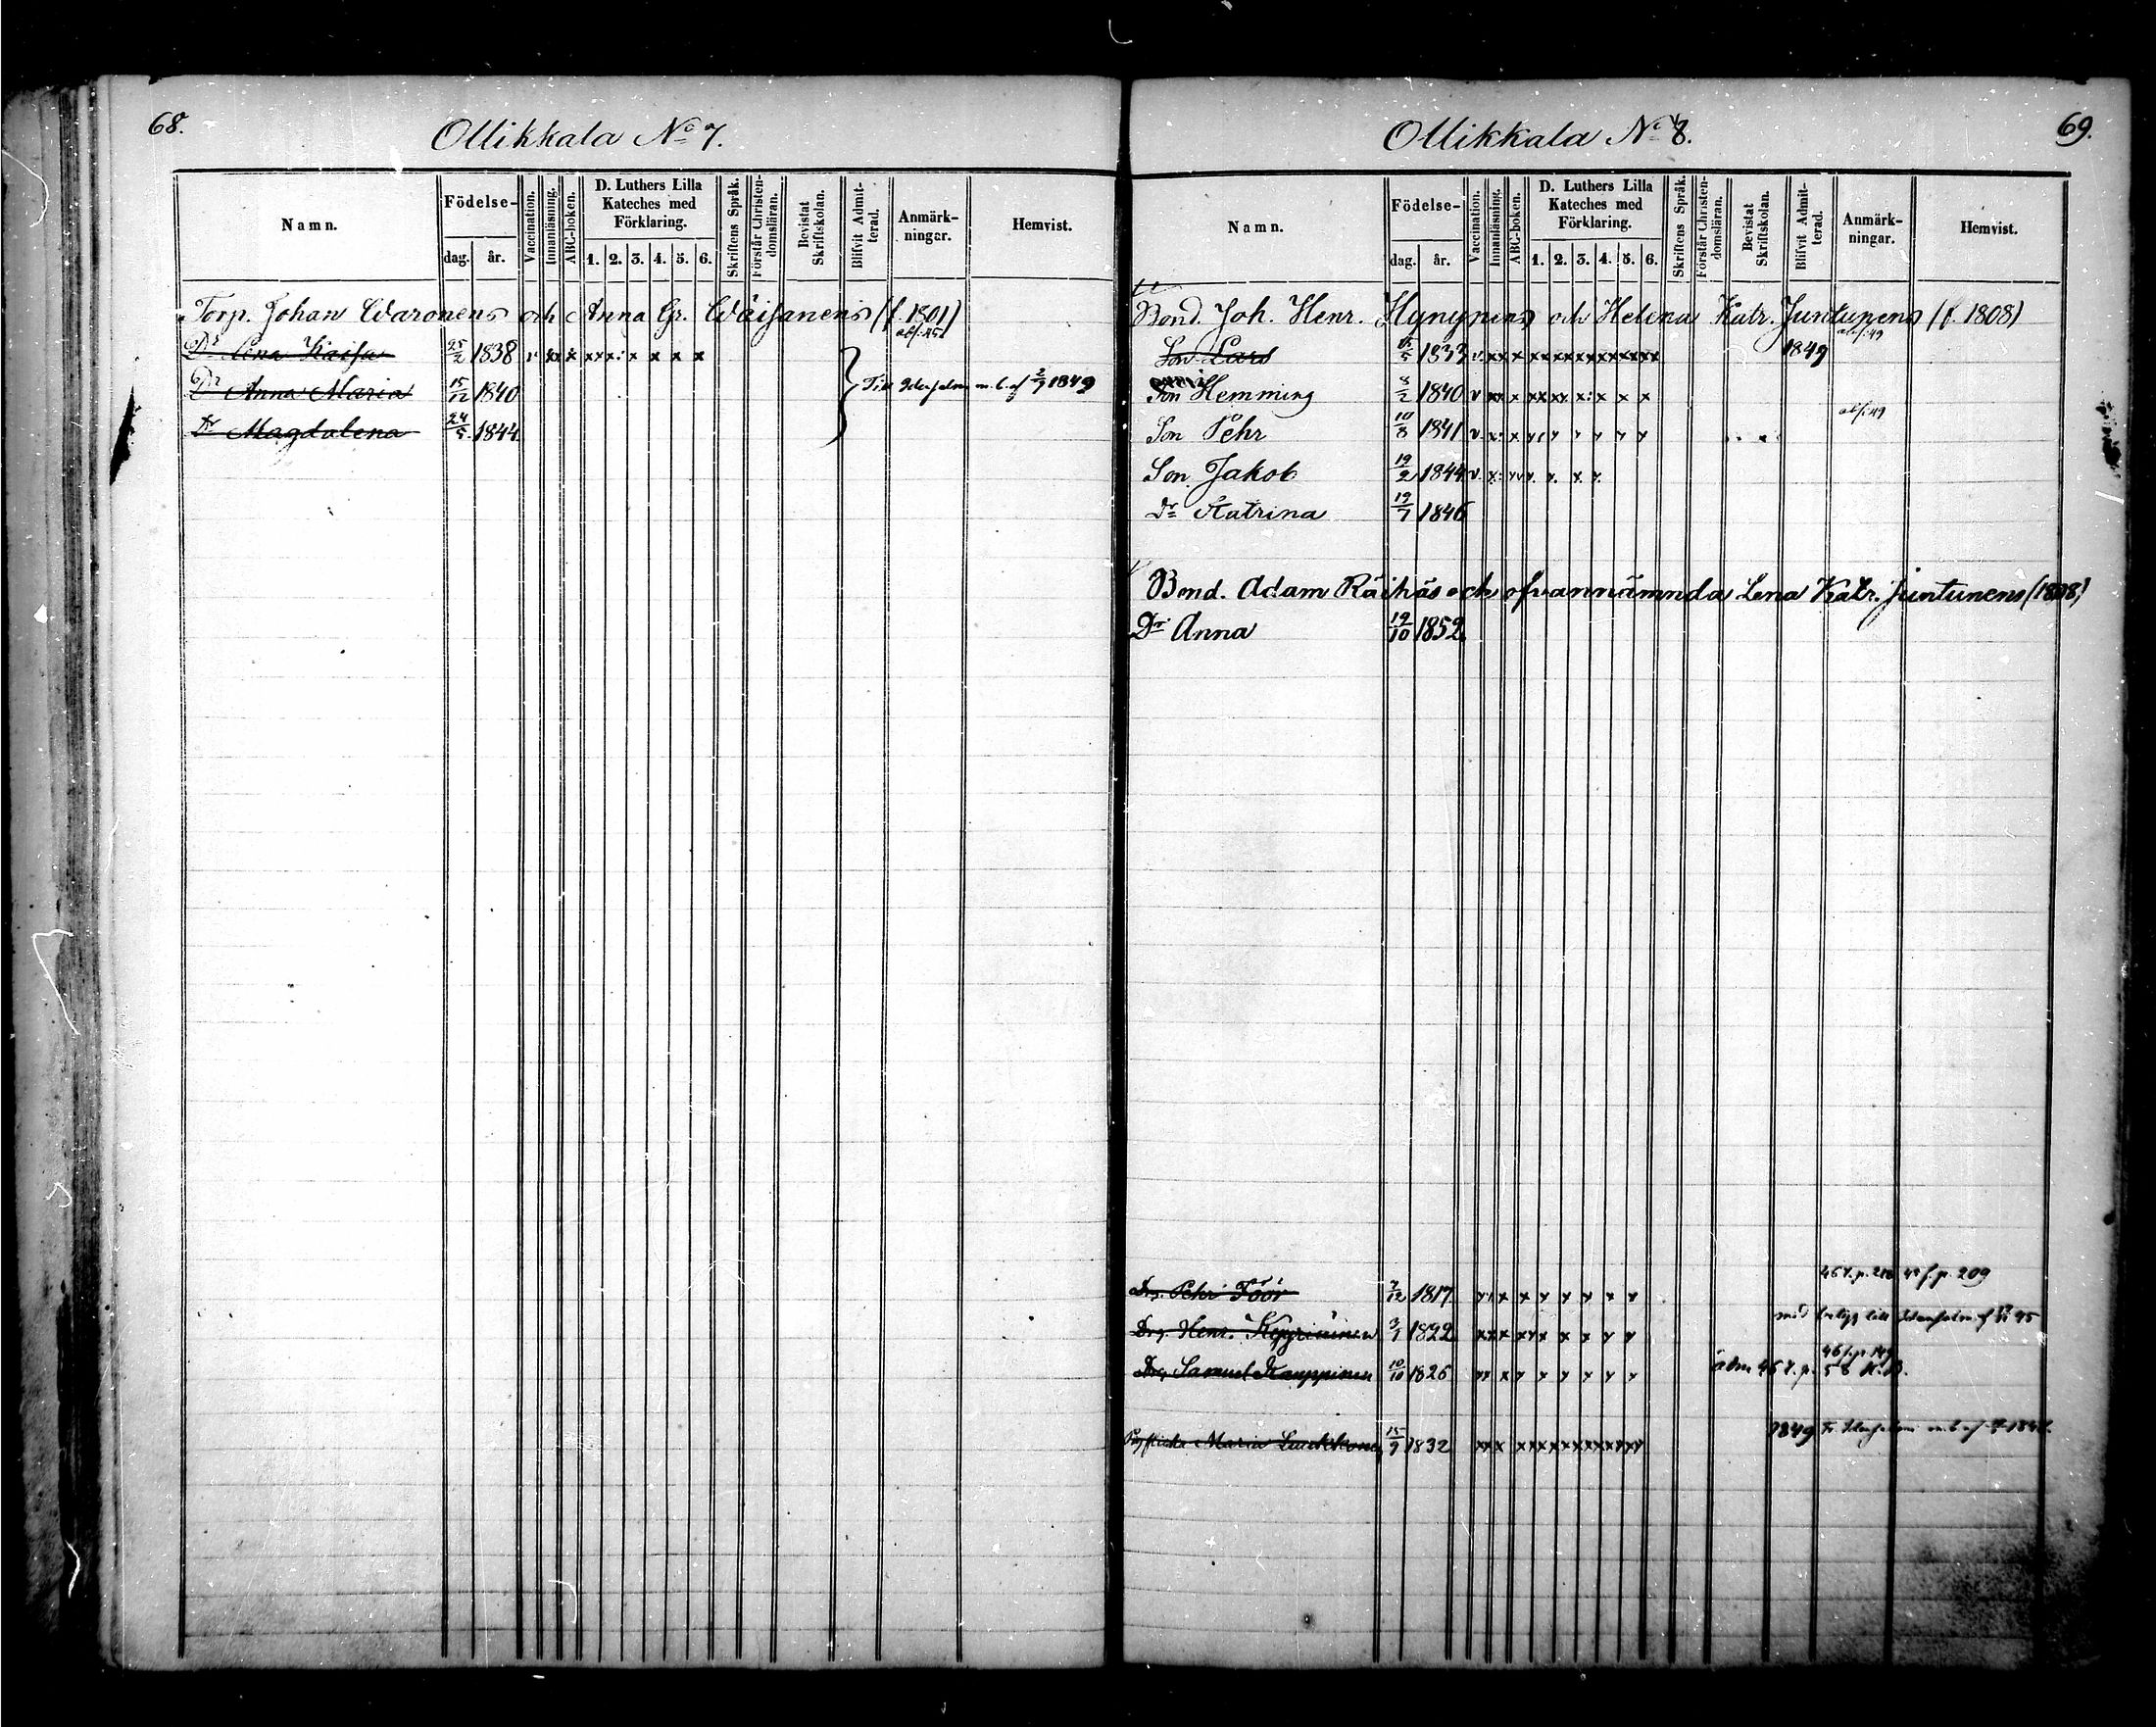 68.
Ollikkala No 7.
Namn. Födelse- dag. år. Vaccination. Innanläsning. ABC-boken. D. Luthers Lilla Kateches med Förklaring. 1. 2. 3. 4. 5. 6. Skriftens Språk. Förstår Christendomsläran. Bevistat Skriftskolan. Blifvit Admitterad. Anmärkningar. Hemvist.
Torp. Johan Waronens och Anna Gr. Wäisanens (f. 1801)
Dr Lena Kaisa 25/2 1838 v xx x xx x: x x x x
Dr Anna Maria 15/12 1840 Till m.b. af 2/7 1849
Dr Magdalena 24/5 1844
69.
Ollikkala No 8.
Namn. Födelse- dag. år. Vaccination. Innanläsning. ABC-boken. D. Luthers Lilla Kateches med Förklaring. 1. 2. 3. 4. 5. 6. Skriftens Språk. Förstår Christendomsläran. Bevistat Skriftskolan. Blifvit Admitterad. Anmärkningar. Hemvist.
Bond. Joh. Henr. Hynynens och Helena Katr. Juntunens (f. 1808)
Son Lars 1833 1849
Son Hemming 8/2 1840
Son Pehr 10/8 1841
Son Jakob 19/2 1844
Dr Katrina 19/7 1846
Bond. Adam Räihäs och ofvannämnda Lena Katr. Juntunens (1808)
Dr Anna 19/10 1852
Drg. Pehr Föör 7/12 1817 p. 209
Drg. Henr. 3/1 1822 med betyg till 45
Drg Samuel Kauppinen 10/10 1826 p. 58
Maria 15/9 1832 1849